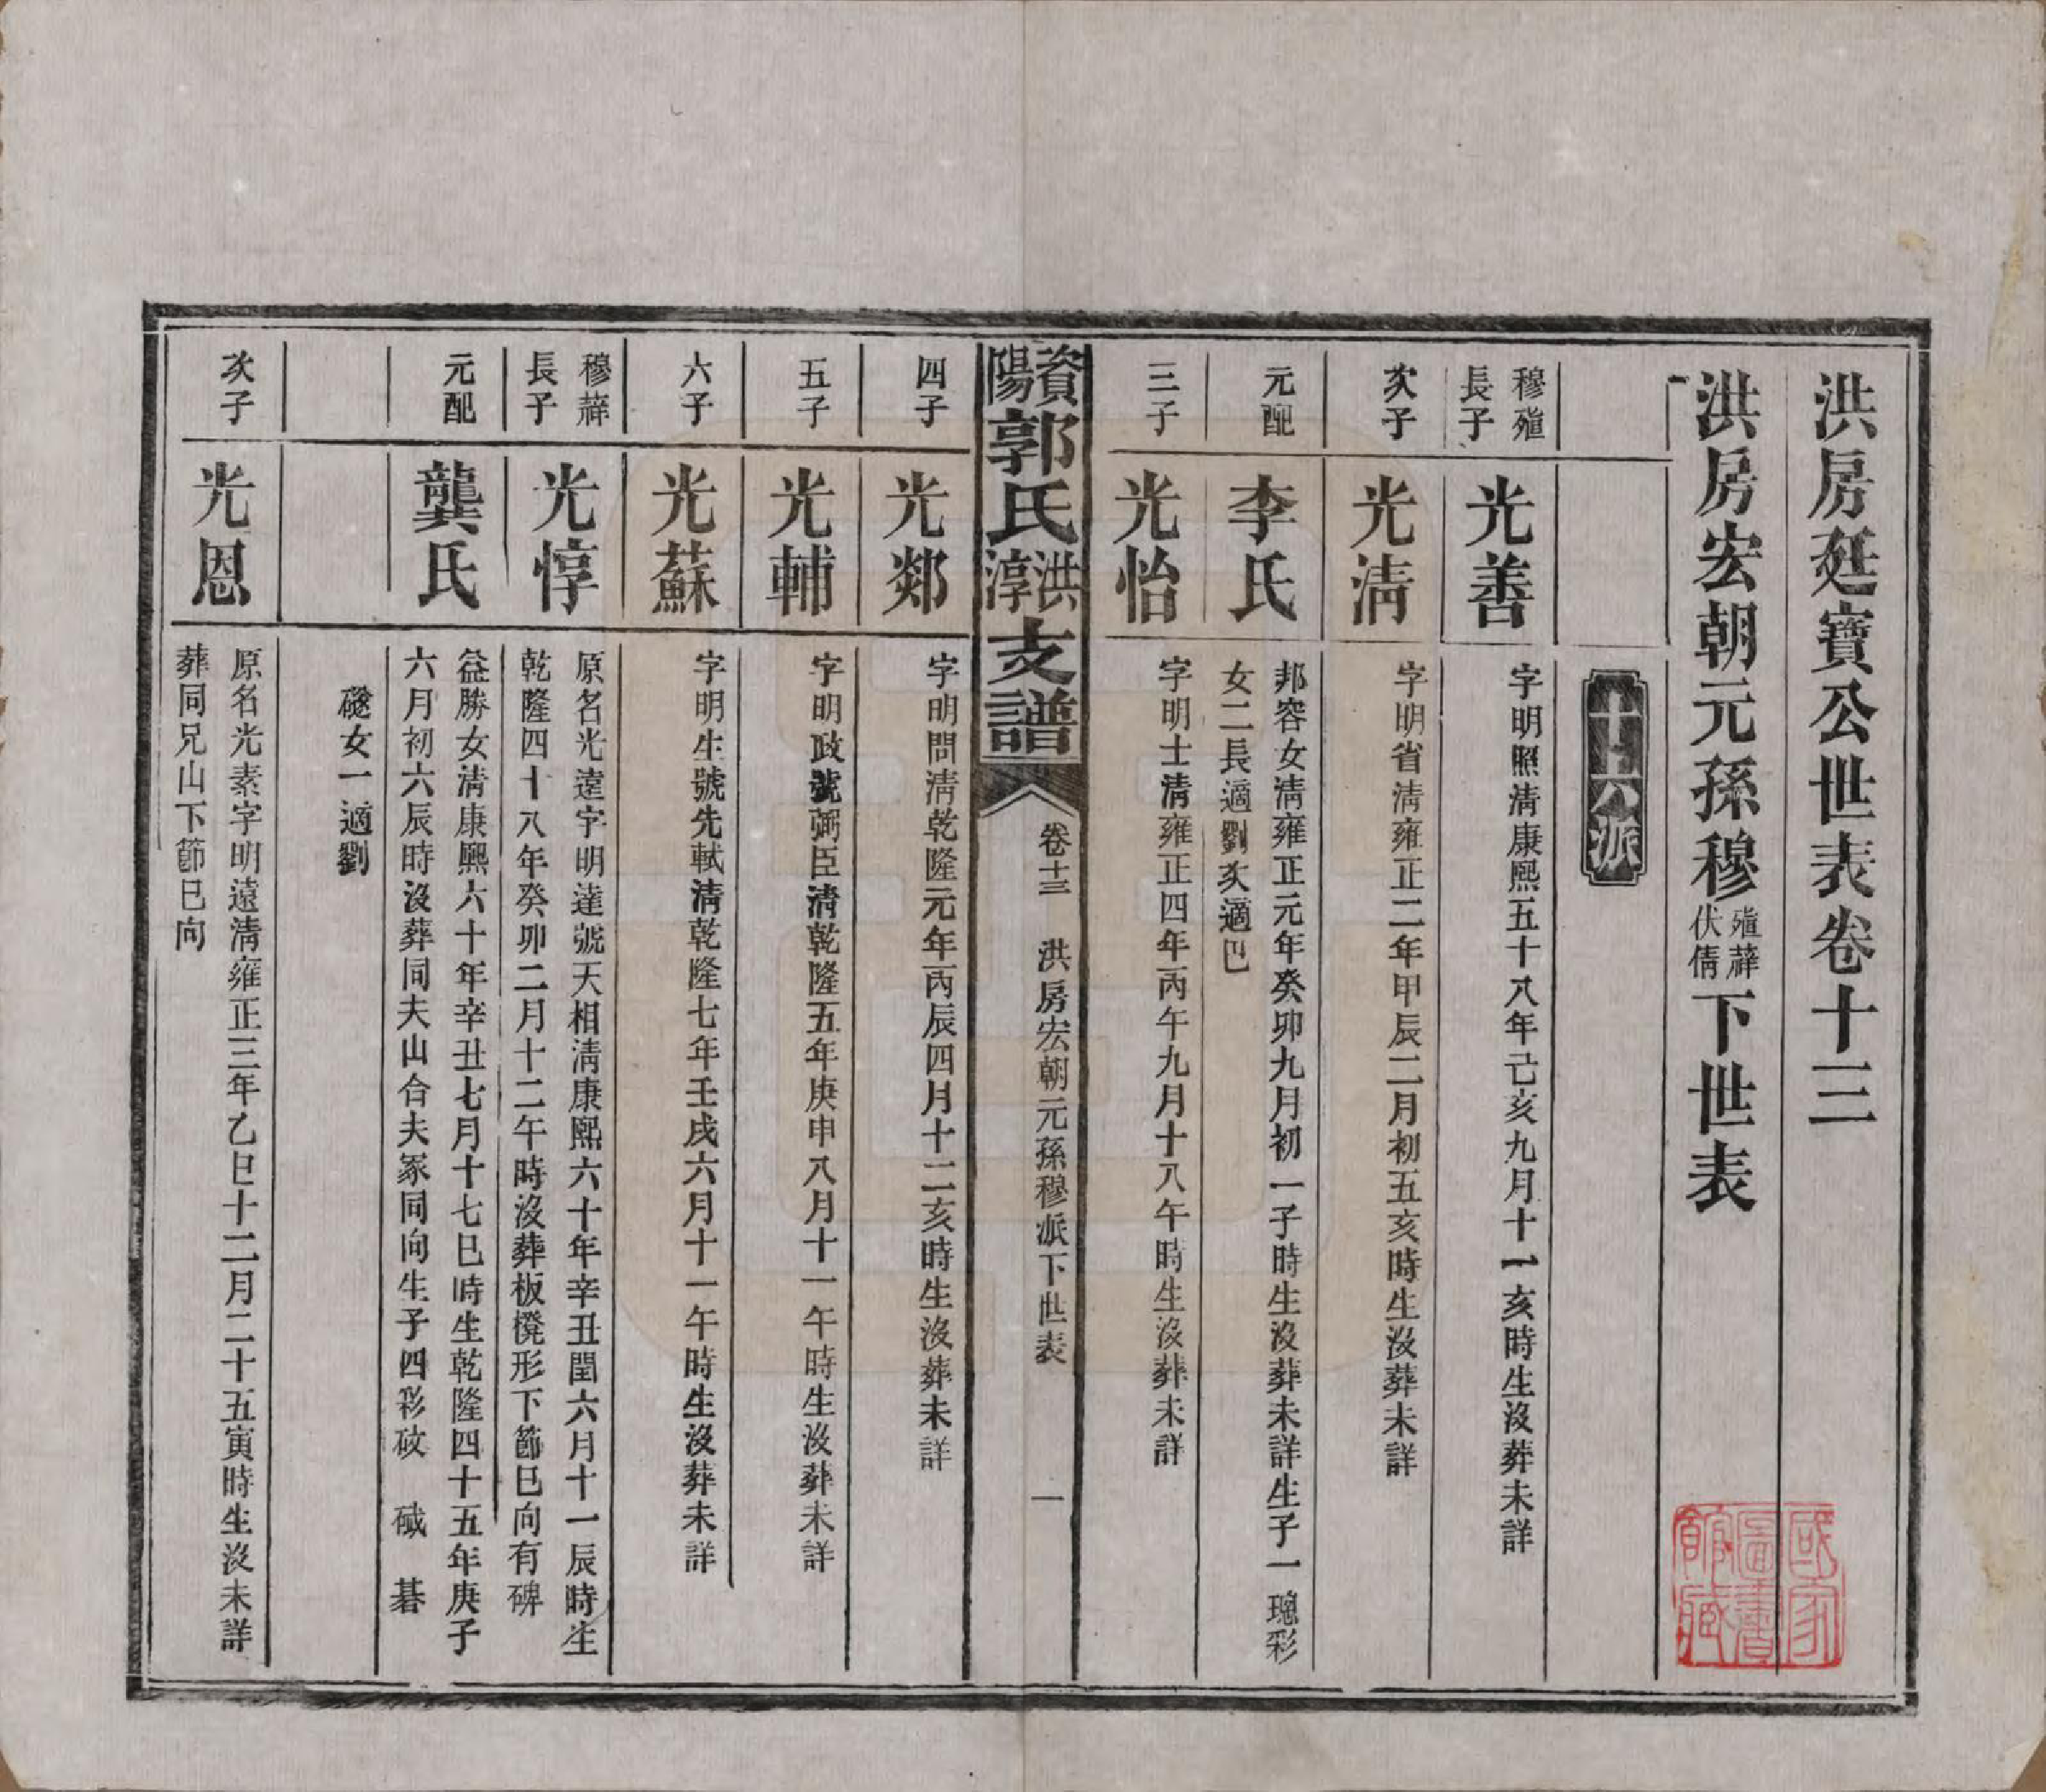 洪房廷寶公世表卷十三
洪房宏朝元孫穆殖薜伏倩下世表
十六派
穆殖長子
光善
字明照淸康熙五十八年己亥九月十一亥時生沒葬未詳
次子
光淸
字明省淸雍正二年甲辰二月初五亥時生沒葬未詳
元配
李氏
邦容女淸雍正元年癸卯九月初一子時生沒葬未詳生子一瑰彩
女二長適劉次適巴
三子
光怡
字明士淸雍正四年丙午九月十八午時生沒葬未詳
資陽郭氏洪淳支譜
卷十三 洪房宏朝元孫穆派下世表 一
四子
光郯
字明問淸乾隆元年丙辰四月十二亥時生沒葬未詳
五子
光輔
字明政號弼臣淸乾隆五年庚申八月十一午時生沒葬未詳
六子
光蘇
字明生號先軾淸乾隆七年壬戌六月十一午時生沒葬未詳
穆薜長子
光惇
原名光達字明達號天相淸康熙六十年辛丑閏六月十一辰時生
乾隆四十八年癸卯二月十二午時沒葬板櫈形下節巳向有碑
元配
龔氏
益勝女淸康熙六十年辛丑七月十七巳時生乾隆四十五年庚子
六月初六辰時沒葬同夫山合夫冢同向生子四彩砇 磩 碁
䃡女一適劉
次子
光恩
原名光素字明遠淸雍正三年乙巳十二月二十五寅時生沒未詳
葬同兄山下節巳向
國家圖書館藏